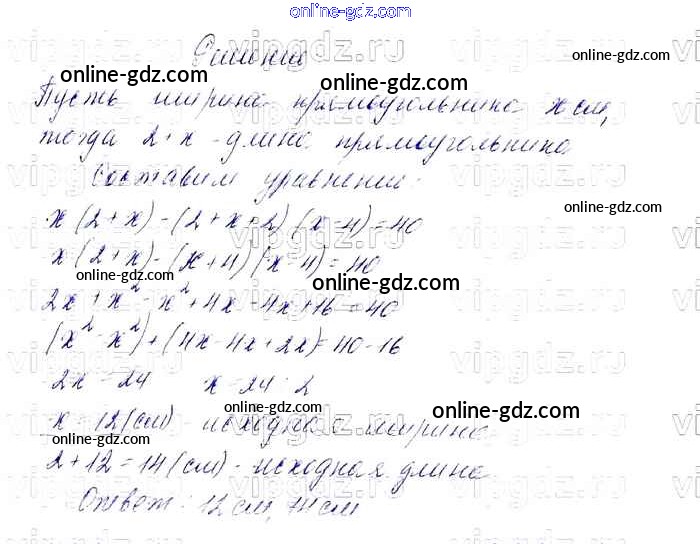 online-gdz.com
Решение
online-gdz.com
online-gdz.com
online-gdz.com
Пусть ширина прямоугольника x см,
тогда 2+x - длина прямоугольника
Составим уравнение:
online-gdz.com
x(2+x)-(2+x+2)(x-4)=40
x(2+x)-(x+4)(x-4)=40
online-gdz.com
online-gdz.com
2x+x²-x²+4x-4x+16=40
(x²-x²)+(4x-4x+2x)=40-16
2x=24 x=24:2
online-gdz.com
online-gdz.com
x=12(см) - исходная ширина
online-gdz.com
2+12=14(см) - исходная длина
Ответ: 12см, 14см
online-gdz.com
online-gdz.com